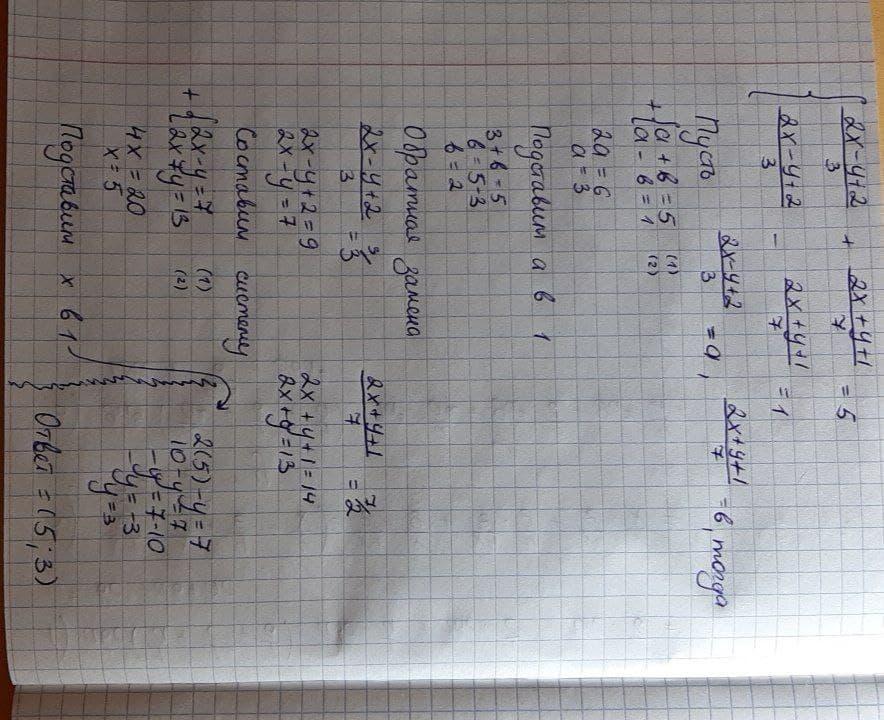 { (2x-y+2)/3 + (2x+y+1)/7 = 5
{ (2x-y+2)/3 - (2x+y+1)/7 = 1
Пусть (2x-y+2)/3 = a, (2x+y+1)/7 = b, тогда
+ { a + b = 5 (1)
{ a - b = 1 (2)
2a = 6
a = 3
Подставим a в 1
3 + b = 5
b = 5-3
b = 2
Обратная замена
(2x-y+2)/3 = 3 (2x+y+1)/7 = 2
2x-y+2=9 2x+y+1=14
2x-y=7 2x+y=13
Составим систему
+ { 2x-y=7 (1)
{ 2x+y=13 (2)
4x=20
x=5
Подставим x в 1
2(5)-y=7
10-y=7
-y=7-10
-y=-3
y=3
Ответ = (5; 3)